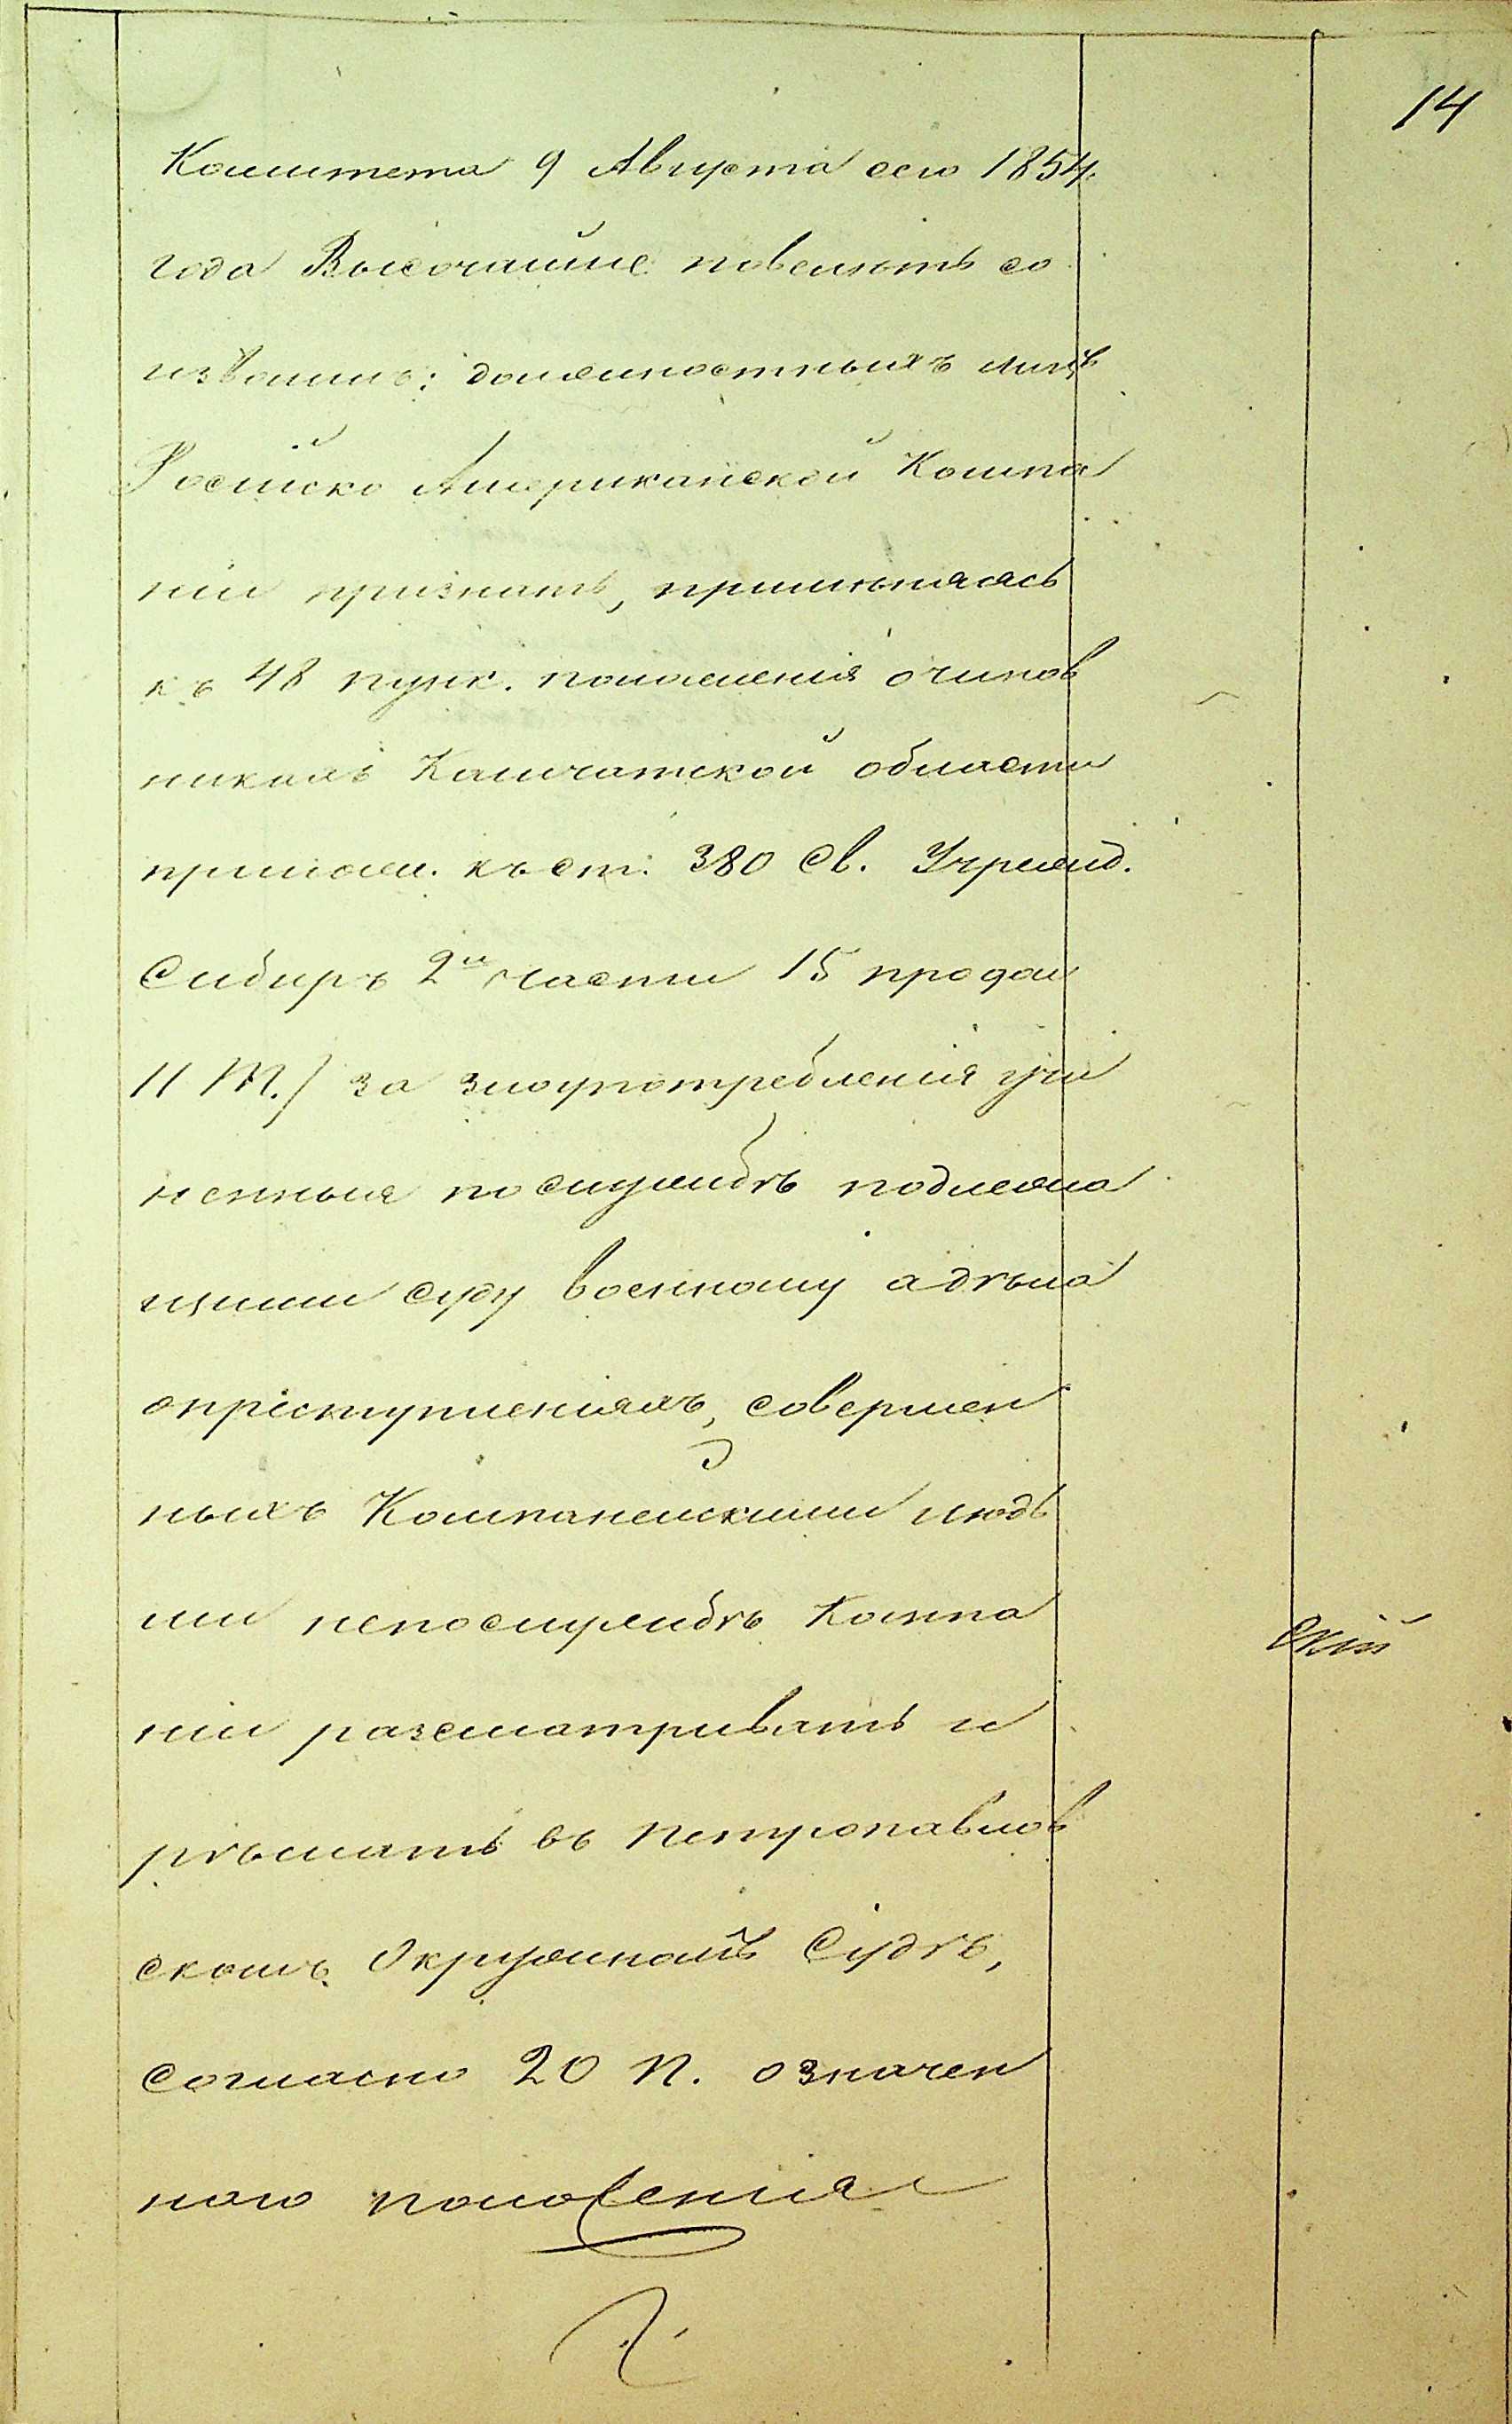 14
Комитета 9 Августа сего 1854.
года Высочайше повелѣть со
изволилъ: должностныхъ лицъ
Россійско Американской Компа
ніи признать, примѣняясь
къ 48 пунк. положенія о чинов
никахъ Камчатской области
/прилож. къ ст. 380 Св. Учрежд.
Сибиръ 2й части 15 продол
II т./ за злоупотребленія учи
ненныя по службѣ подлежа
щими суду военному а дѣла
о преступленіяхъ, совершен
ныхъ Компанейскими людь
ми не по службѣ Компа
ніи разсматривать и
рѣшать въ Петропавлов
скомъ Окружномъ Судѣ,
согласно 20 п. означен
наго положенія
скій